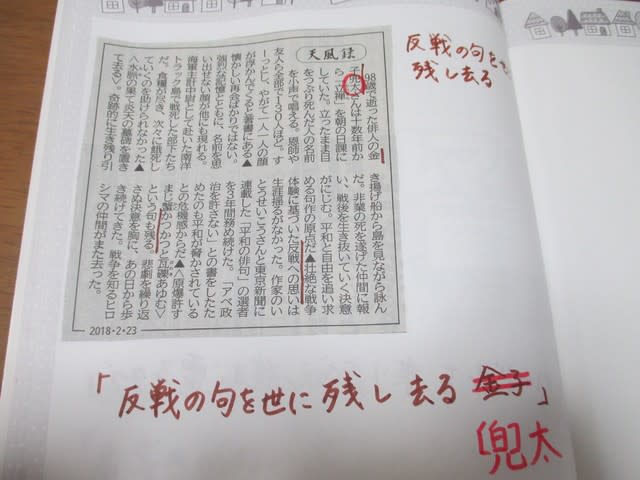 反戦の句を世に
残し去る
天風録
98歳で逝った俳人の金
子兜太さんは十数年前か
ら「立禅」を朝の日課に
していた。立ったまま目
をつぶり死んだ人の名前
を小声で唱える。恩師や
友人ら全部で130人ほど。す
ーっとし、やがて一人一人の顔
が浮かんでくると著書にある▲
懐かしい再会ばかりではない。
強烈な記憶とともに、名前を思
い出せない顔が他にも現れる。
海軍主計中尉として赴いた南洋
トラック島で戦死した部下たち
だ。食糧が尽き、次々に餓死し
ていくのを助けられなかった▲
〈水脈の果て炎天の墓碑を置き
て去る〉。奇跡的に生き残り引
き揚げ船から島を見ながら詠ん
だ。非業の死を遂げた仲間に報
い、戦後を生き抜いていく決意
がにじむ。平和と自由を追い求
める句作の原点だ▲壮絶な戦争
体験に基づいた反戦への思いは
生涯揺るがなかった。作家のい
とうせいこうさんと東京新聞に
連載した「平和の俳句」の選者
を3年間務め続けた。「アベ政
治を許さない」との書をしたた
めたのも平和が脅かされている
との危機感からだ▲〈原爆許す
まじ蟹かつかつと瓦礫あゆむ〉
という句も残る。悲劇を繰り返
さぬ決意を胸に、あの日から歩
き続けてきた。戦争を知るヒロ
シマの仲間がまた去った。
2018・2・23
「反戦の句を世に残し去る 金子」
兜太